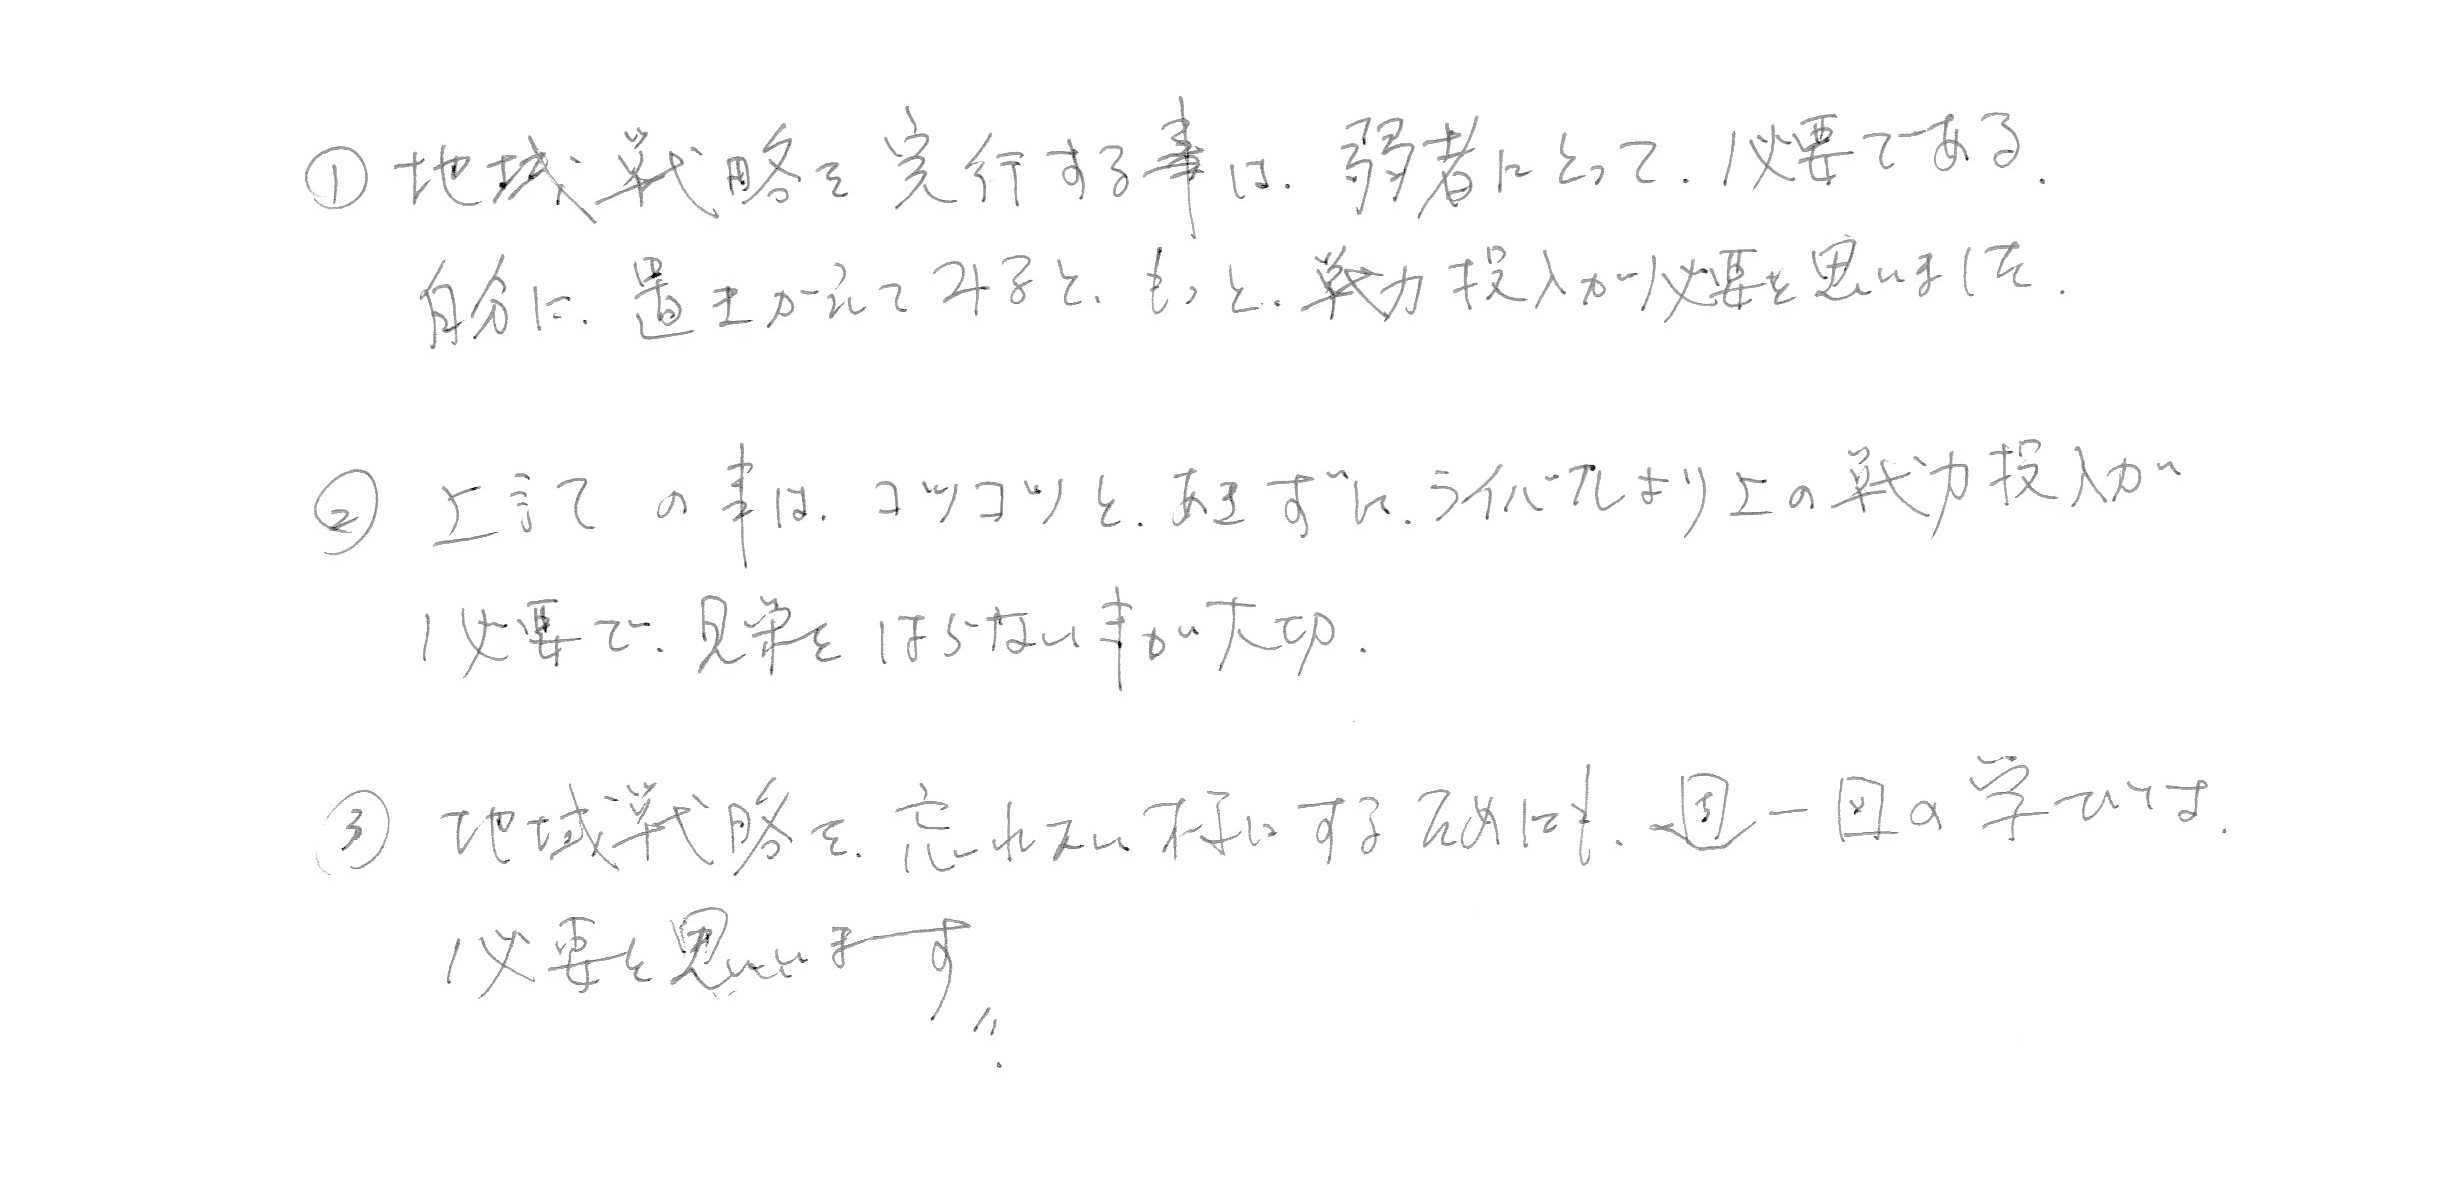 ① 地域戦略を実行する事は、弱者にとって、必要である。
自分に、置きかえてみると、もっと、戦力投入が必要と思いました。
② 上記の事は、コツコツと、あきずに、ライバルより上の戦力投入が
必要で、見栄をはらない事が大切。
③ 地域戦略を、忘れない様にするためにも、週一回の学びは、
必要と思います〃